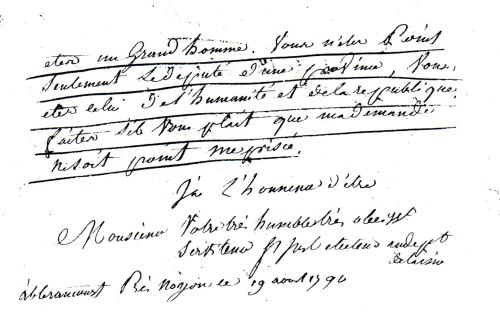 eter un Grand homme. Vous n'eter Point
seulement Ledeputé d'une province, Vous
eter celui de l'humanité et delarepublique.
faiter s'il Vous plait que mademande
ne soit point meprisée.
J'ai L'honneur d'être
Monsieur Votre très humble très obeiss
serviteur St just electeur au dept
delaisne
à blerancourt Près Noyon le 19 aout 1790